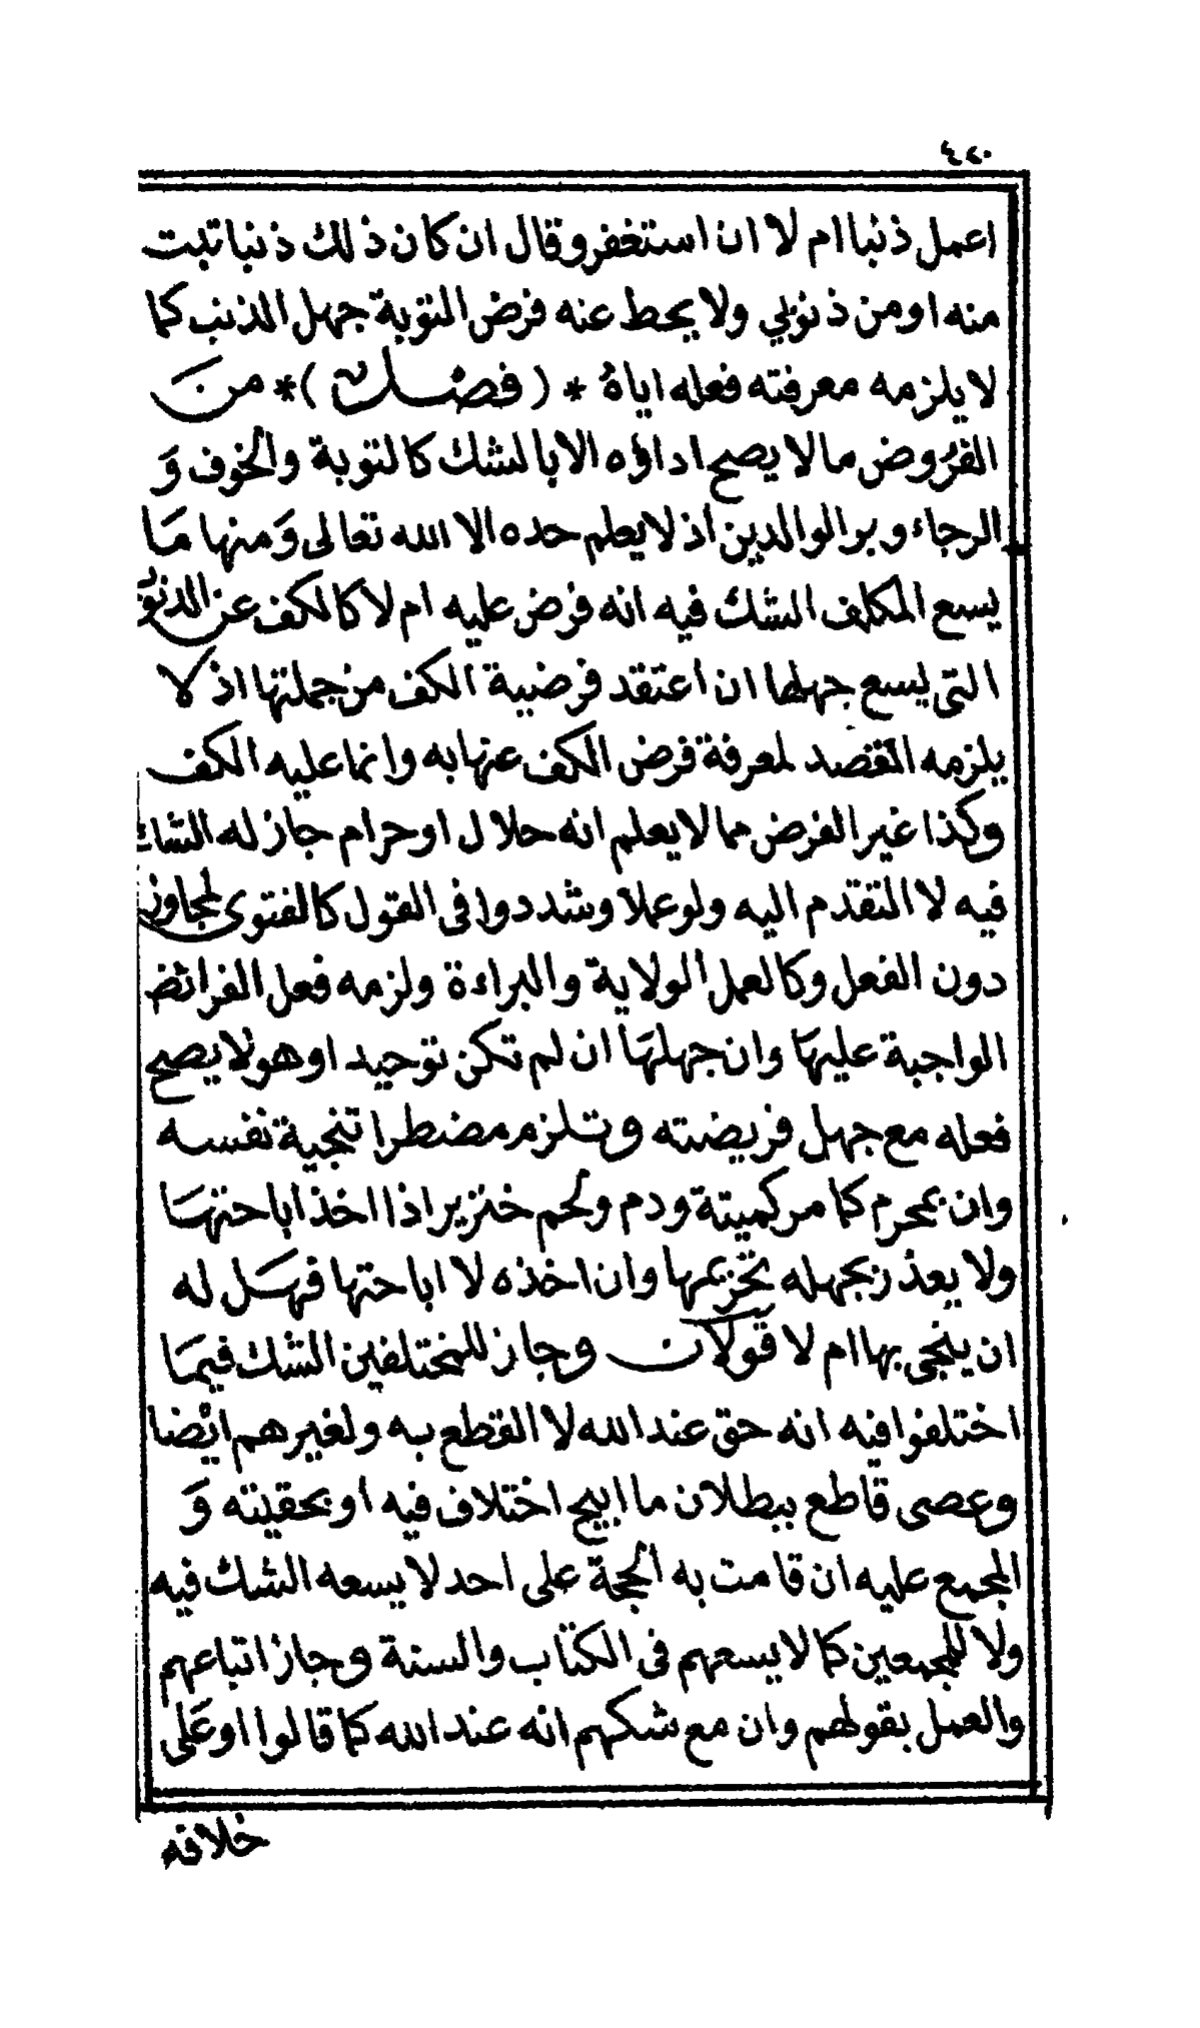 ٤٢٠
اعمل ذنبا ام لا ان استغفر وقال ان كان ذلك ذنبا تبت
منه او من ذنوبي ولا يحط عنه فرض التوبة جهل الذنب كما
لا يلزمه معرفته فعله اياهُ * (فصل) * من
الفرُوض ما لا يصح اداؤه الا بالشك كالتوبة والخوف وَ
الرجاء وبر الوالدين اذ لا يعلم حده الا الله تعالى وَمنها مَا
يسع المكلف الشك فيه انه فرض عليه ام لا كالكف عن الذنوب
التى يسع جهلها ان اعتقد فرضية الكف من جملتها اذ لا
يلزمه القصد لمعرفة فرض الكف عنها به وانما عليه الكف
وكذا غير الفرض مما لا يعلم انه حلال او حرام جاز له الشك
فيه لا التقدم اليه ولو عملا وشددوا فى القول كالفتوى لمجاوز
دون الفعل وكالعمل الولاية والبراءة ولزمه فعل الفرائض
الواجبة عليهَا وان جهلهَا ان لم تكن توحيد او هو لا يصح
فعله مع جهل فريضته وتلزم مضطرا تنجية نفسه
وان بمحرم كما مر كميتة ودم ولحم خنزير اذا اخذ اباحتهَا
ولا يعذر بجهله تحريمها وان اخذه لا اباحتها فهَل له
ان ينجى بها ام لا قولان وجاز للمختلفين الشك فيمَا
اختلفوا فيه انه حق عند الله لا القطع به ولغيرهم ايْضا
وعصى قاطع ببطلان ما ابيح اختلاف فيه او بحقيته وَ
المجمع عليه ان قامت به الحجة على احد لا يسعه الشك فيه
ولا للمجمعين كما لا يسعهم فى الكتاب والسنة وجاز اتباعهم
والعمل بقولهم وان مع شكهم انه عند الله كما قالوا او عَلى
خلافه